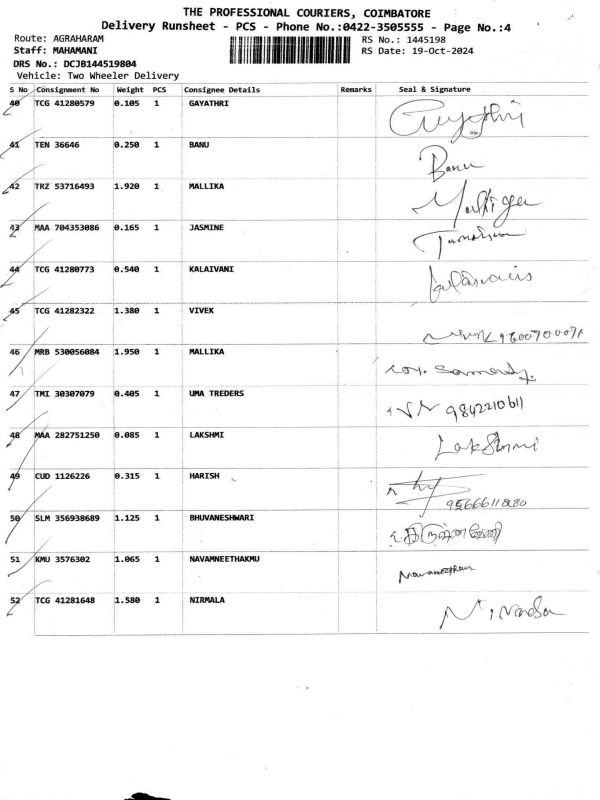 THE PROFESSIONAL COURIERS, COIMBATORE
Delivery Runsheet - PCS - Phone No.:0422-3505555 - Page No.:4
Route: AGRAHARAM
RS No.: 1445198
Staff: MAHAMANI
RS Date: 19-Oct-2024
DRS No.: DCJB144519804
Vehicle: Two Wheeler Delivery
S No Consignment No Weight PCS Consignee Details Remarks Seal & Signature
40 TCG 41280579 0.105 1 GAYATHRI
41 TEN 36646 0.250 1 BANU Banu
42 TRZ 53716493 1.920 1 MALLIKA
43 MAA 704353086 0.165 1 JASMINE
44 TCG 41280773 0.540 1 KALAIVANI
45 TCG 41282322 1.380 1 VIVEK
46 MRB 530056084 1.950 1 MALLIKA
47 TMI 30307079 0.405 1 UMA TREDERS 9842210611
48 MAA 282751250 0.085 1 LAKSHMI Lakshmi
49 CUD 1126226 0.315 1 HARISH
50 SLM 356938689 1.125 1 BHUVANESHWARI
51 KMU 3576302 1.065 1 NAVAMNEETHAKMU
52 TCG 41281648 1.580 1 NIRMALA